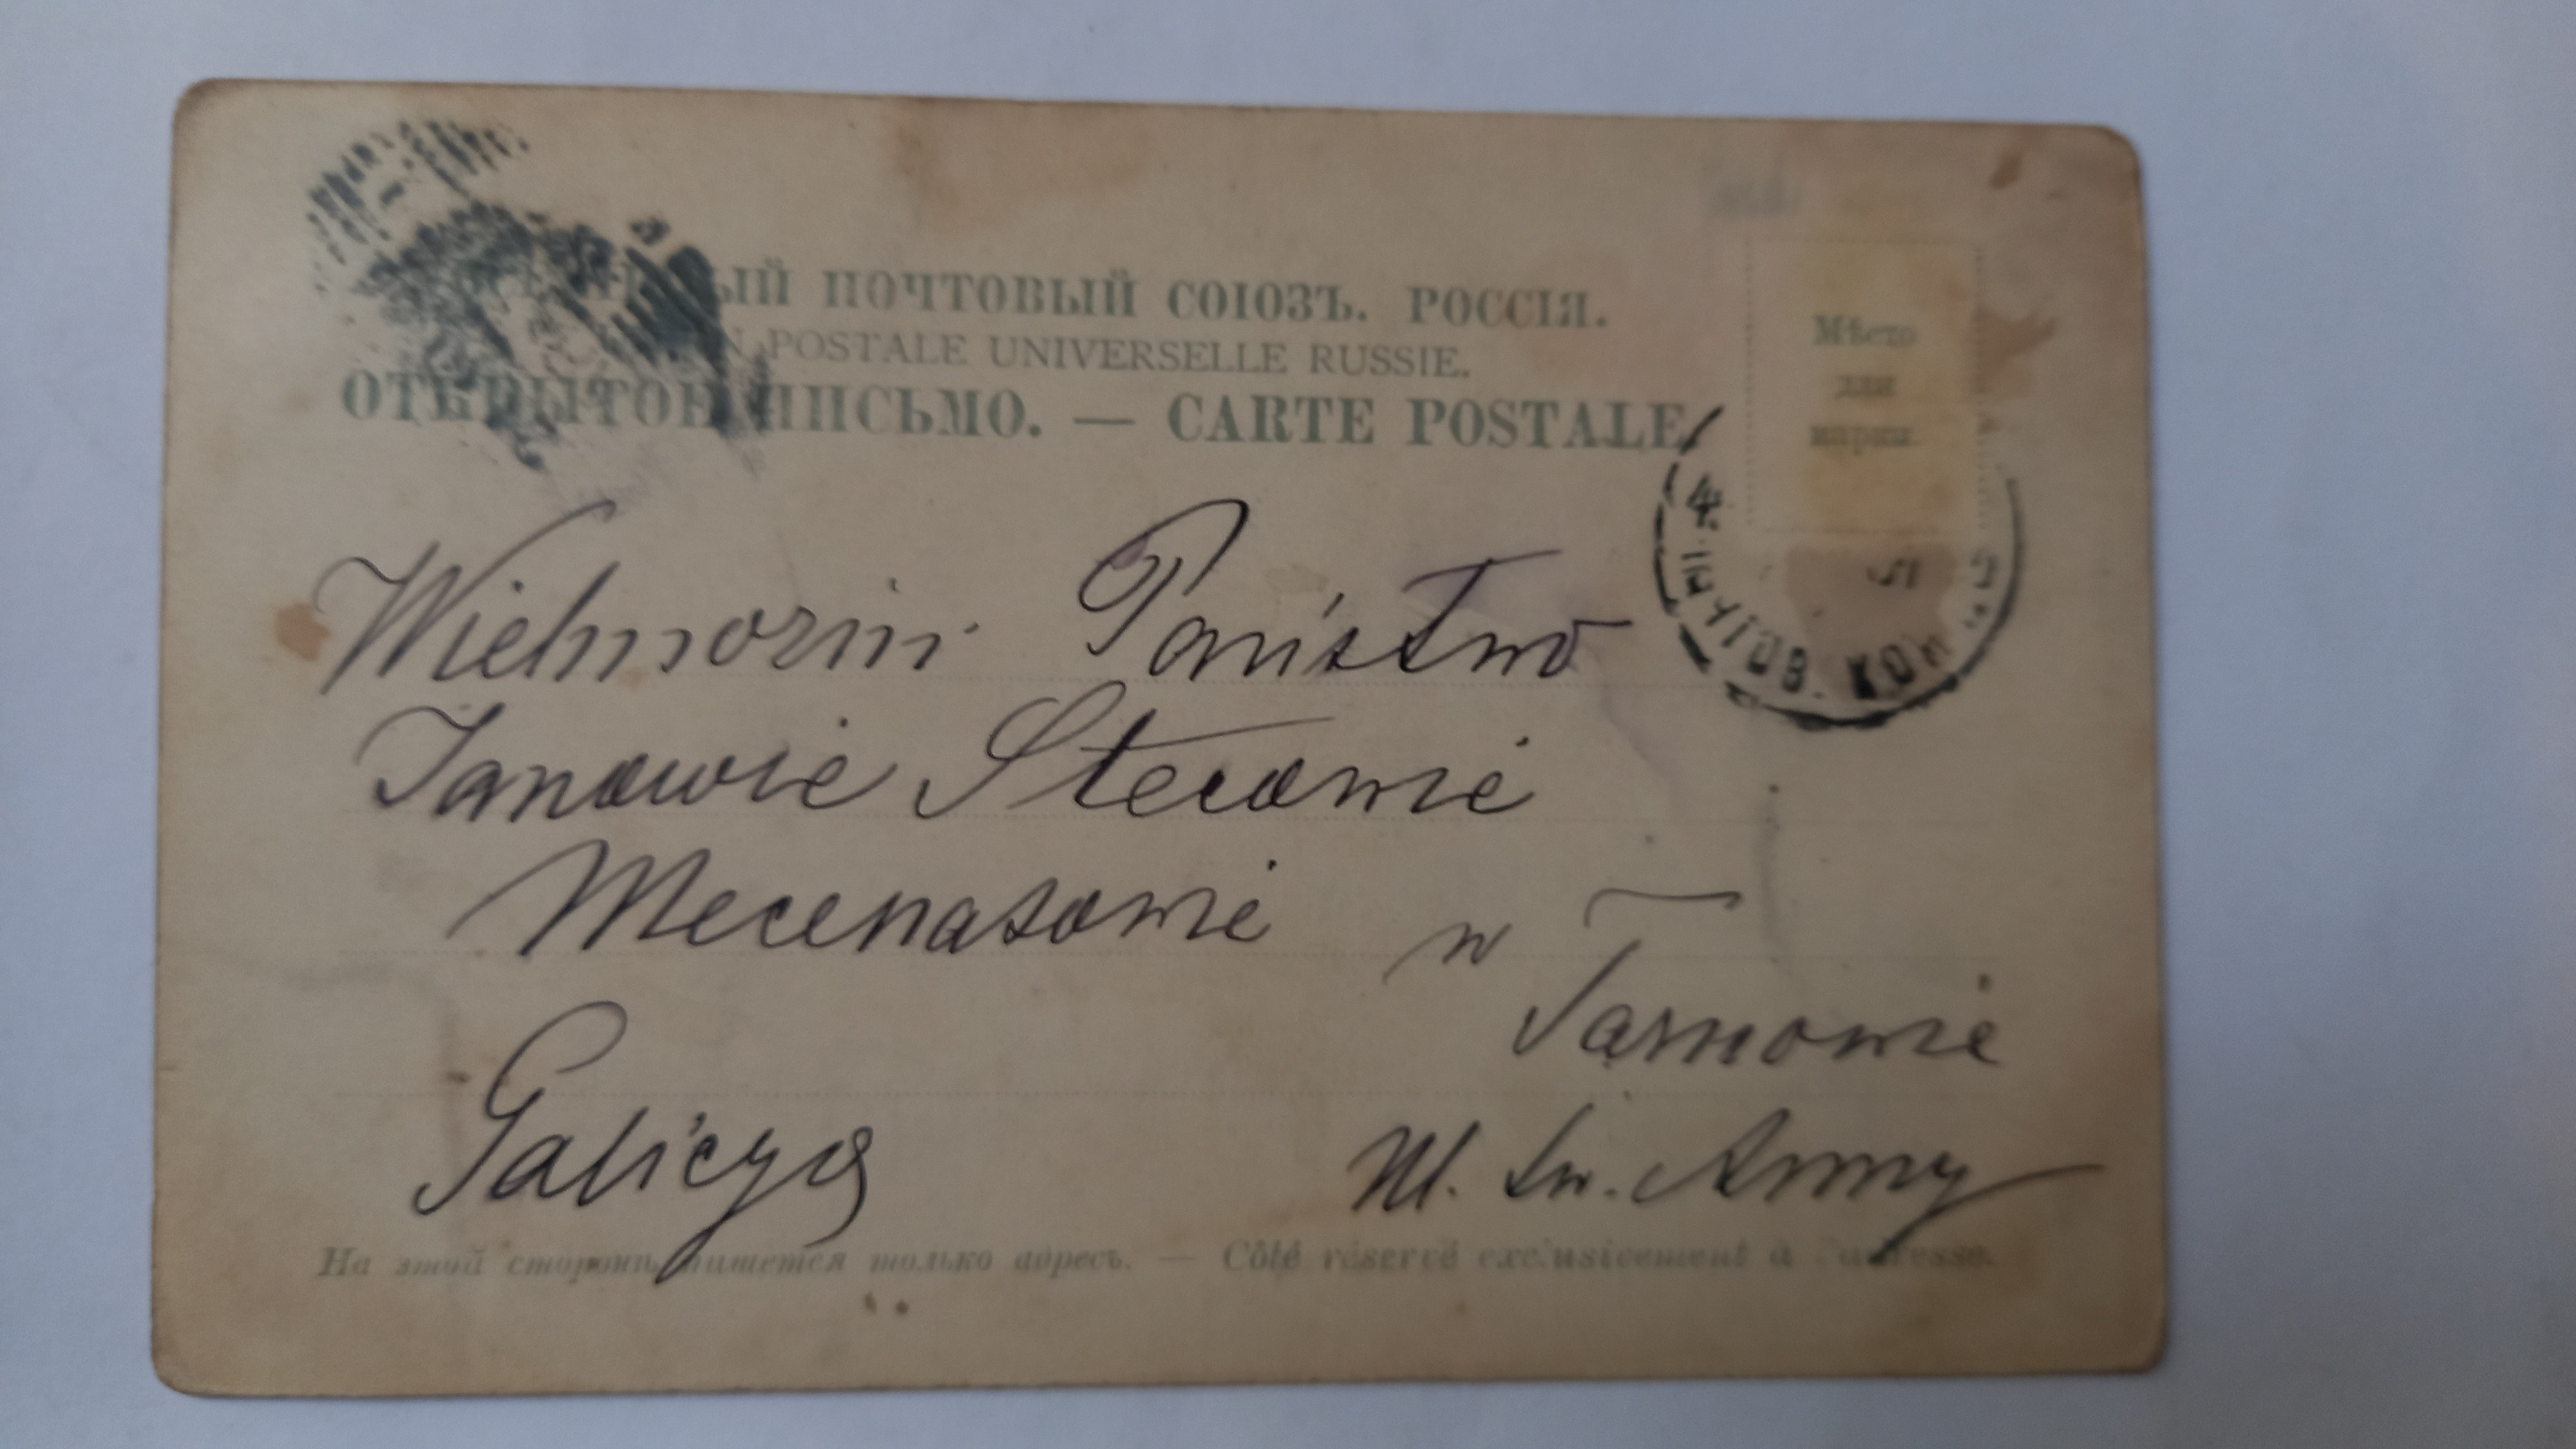 ПОЧТОВЫЙ СОЮЗЪ. РОССІЯ.
POSTALE UNIVERSELLE RUSSIE.
ОТКРЫТОЕ ПИСЬМО. — CARTE POSTALE
Мѣсто
для
марки
4.
Wielmożni Państwo
Janowie Stecowie
Mecenasowie w
Tarnowie
Galicya Ul. Św. Anny
На этой сторонѣ пишется только адресъ. — Côté réservé exclusivement à l'adresse.